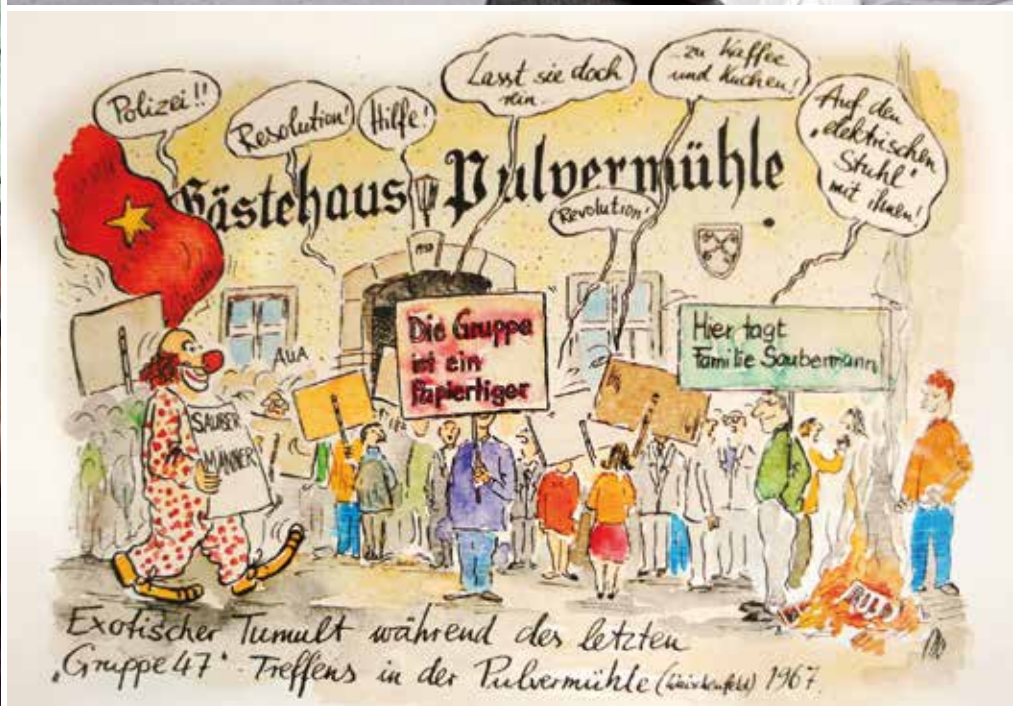 Polizei!!
Resolution!
Hilfe!
Lasst sie doch
rein
..zu Kaffee
und Kuchen!
Auf den
„elektrischen
Stuhl“
mit ihnen!
Gästehaus Pulvermühle
Revolution!
AUA
Die Gruppe
ist ein
Papiertiger
Hier tagt
Familie Saubermann
SAUBER
MÄNNER
BILD
Exotischer Tumult während des letzten
„Gruppe 47“-Treffens in der Pulvermühle (Waischenfeld) 1967.